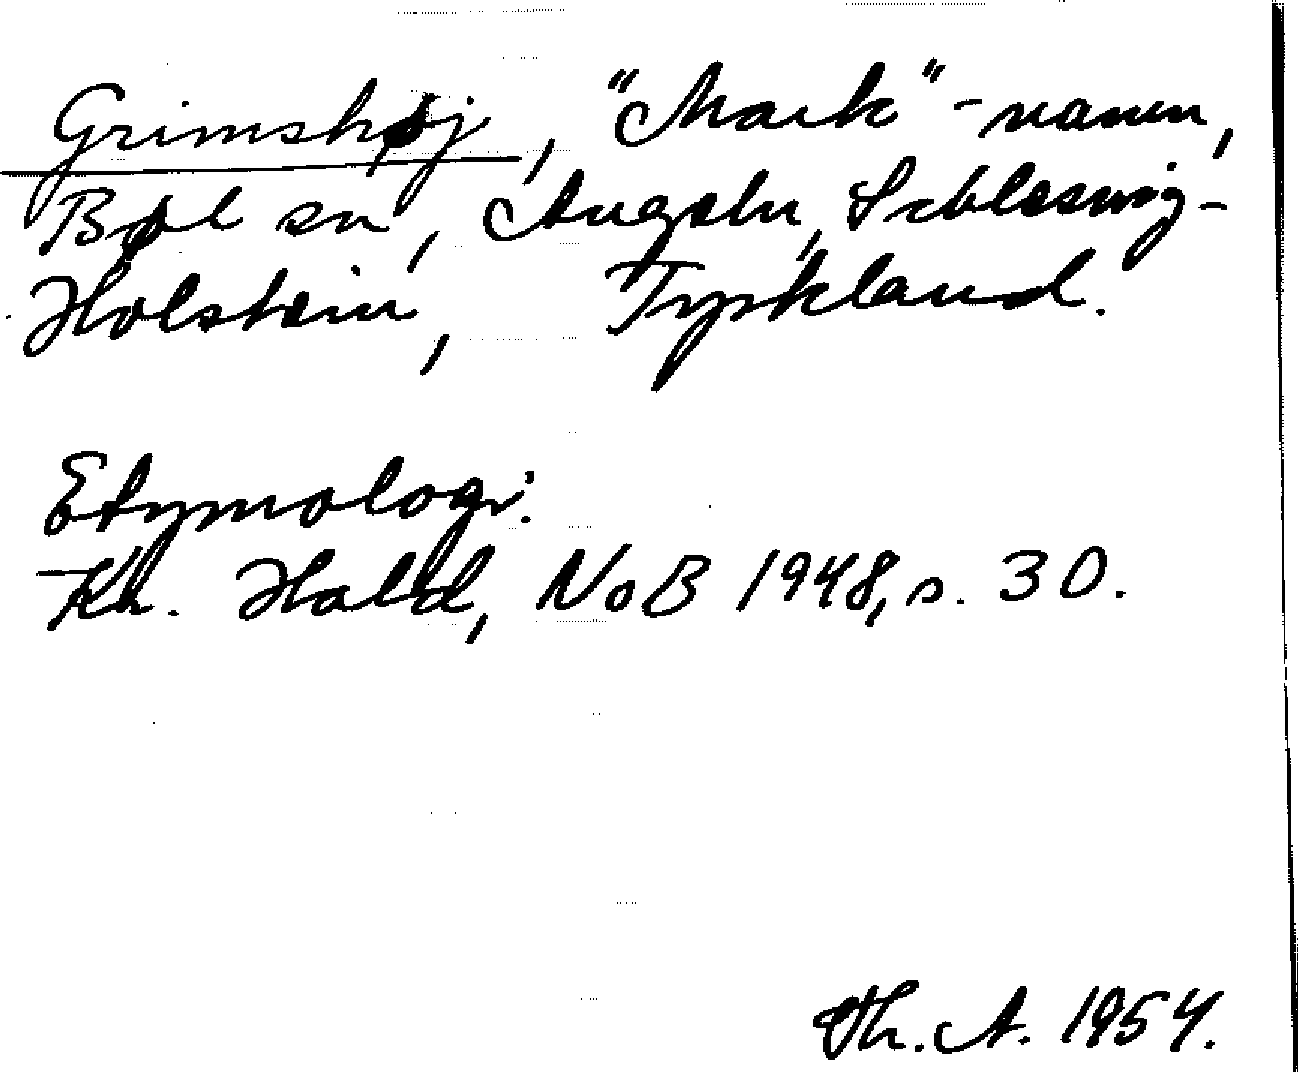 Grimshøj, "Mark"-namn,
Bøl sn, Angeln, Schleswig-
Holstein, Tyskland.
Etymologi:
Kr. Hald, NoB 1948, s. 30.
Th. A. 1954.